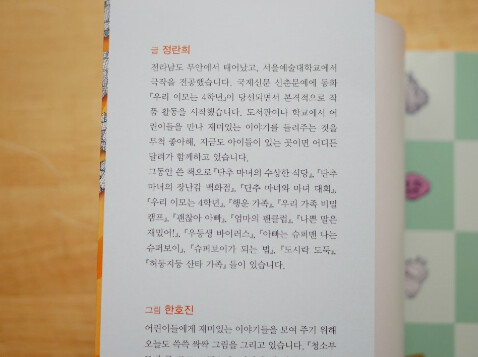 글 정란희
전라남도 무안에서 태어났고, 서울예술대학교에서
극작을 전공했습니다. 국제신문 신춘문예에 동화
『우리 이모는 4학년』이 당선되면서 본격적으로 작
품 활동을 시작했습니다. 도서관이나 학교에서 어
린이들을 만나 재미있는 이야기를 들려주는 것을
무척 좋아해, 지금도 아이들이 있는 곳이면 어디든
달려가 함께하고 있습니다.
그동안 쓴 책으로 『단추 마녀의 수상한 식당』, 『단추
마녀의 장난감 백화점』, 『단추 마녀와 마녀 대회』,
『우리 이모는 4학년』, 『행운 가족』, 『우리 가족 비밀
캠프』, 『괜찮아 아빠』, 『엄마의 팬클럽』, 『나쁜 말은
재밌어!』, 『우등생 바이러스』, 『아빠는 슈퍼맨 나는
슈퍼보이』, 『슈퍼보이가 되는 법』, 『도시락 도둑』,
『허둥지둥 산타 가족』 들이 있습니다.
그림 한호진
어린이들에게 재미있는 이야기들을 보여 주기 위해
오늘도 쓱쓱 싹싹 그림을 그리고 있습니다. 『청소부